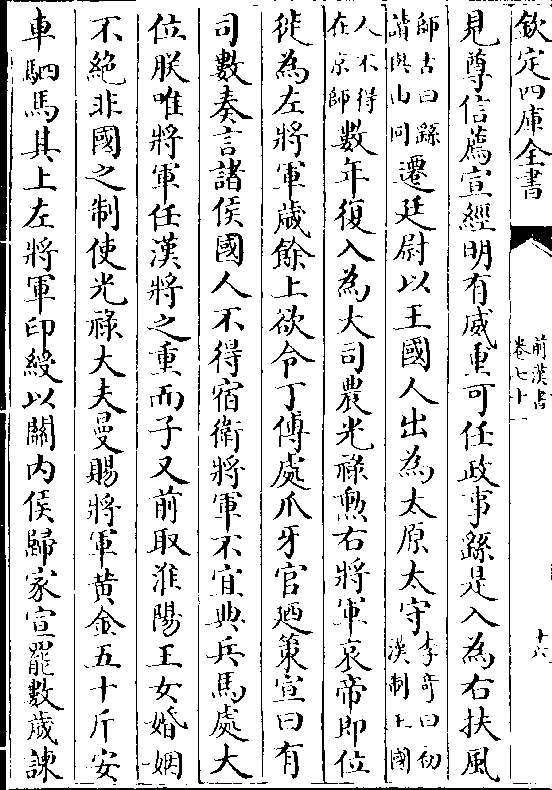 欽定四庫全書
前漢書
卷七十一
十六
見尊信薦宣經明有威重可任政事繇是入為右扶風
師古曰繇
讀與由同
遷廷尉以王國人出為太原太守
李奇曰初
漢制王國
人不得
在京師
數年復入為大司農光祿勲右將軍哀帝即位
徙為左將軍歲餘上欲令丁傅處爪牙官廼策宣曰有
司數奏言諸侯國人不得宿衛將軍不宜典兵馬處大
位朕唯將軍任漢將之重而子又前取淮陽王女婚姻
不絕非國之制使光祿大夫曼賜將軍黃金五十斤安
車駟馬其上左將軍印綬以關內侯歸家宣罷數歲諫